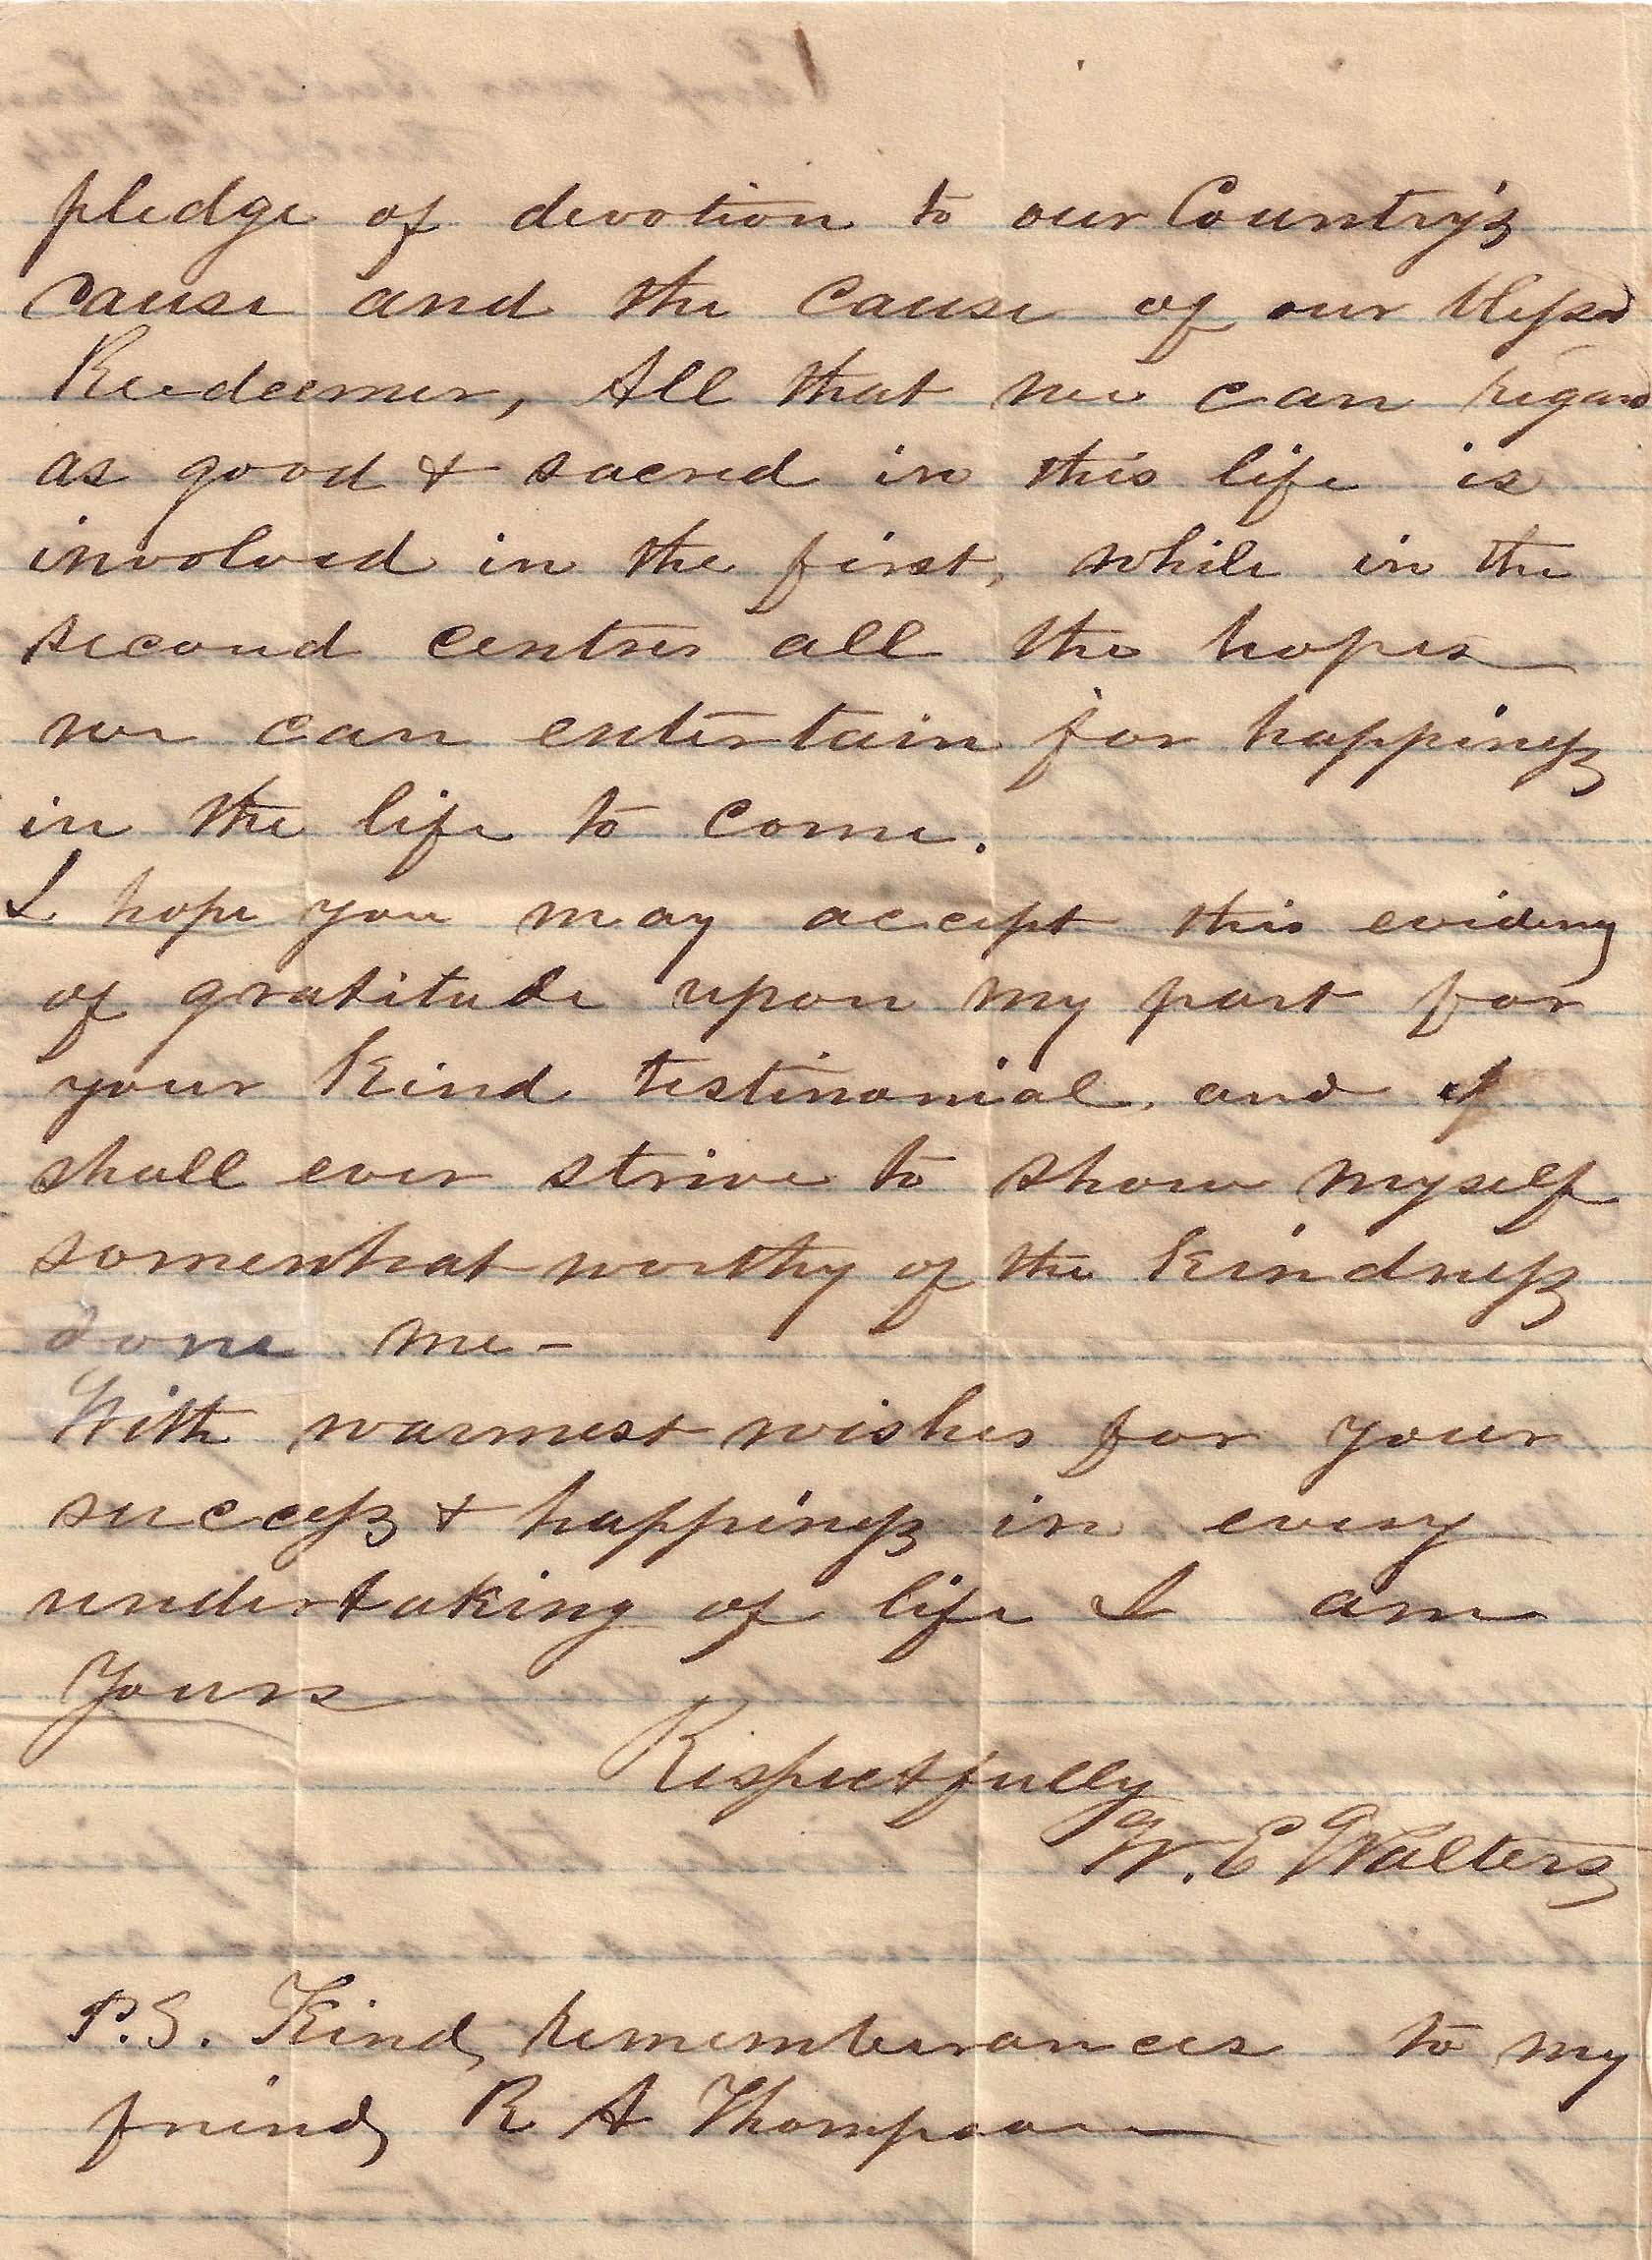 pledge of devotion to our Country's
cause and the cause of our blessed
Redeemer, All that we can regard
as good & sacred in this life is
involved in the first, while in the
second centres all the hopes
we can entertain for happiness
in the life to come.
I hope you may accept this evidence
of gratitude upon my part for
your kind testimonial, and I
shall ever strive to show myself
somewhat worthy of the kindness
done me -
With warmest wishes for your
success & happiness in every
undertaking of life I am
Yours
Respectfully
W. E Walters
P.S. Kind rememberances to my
friend, R A Thompson